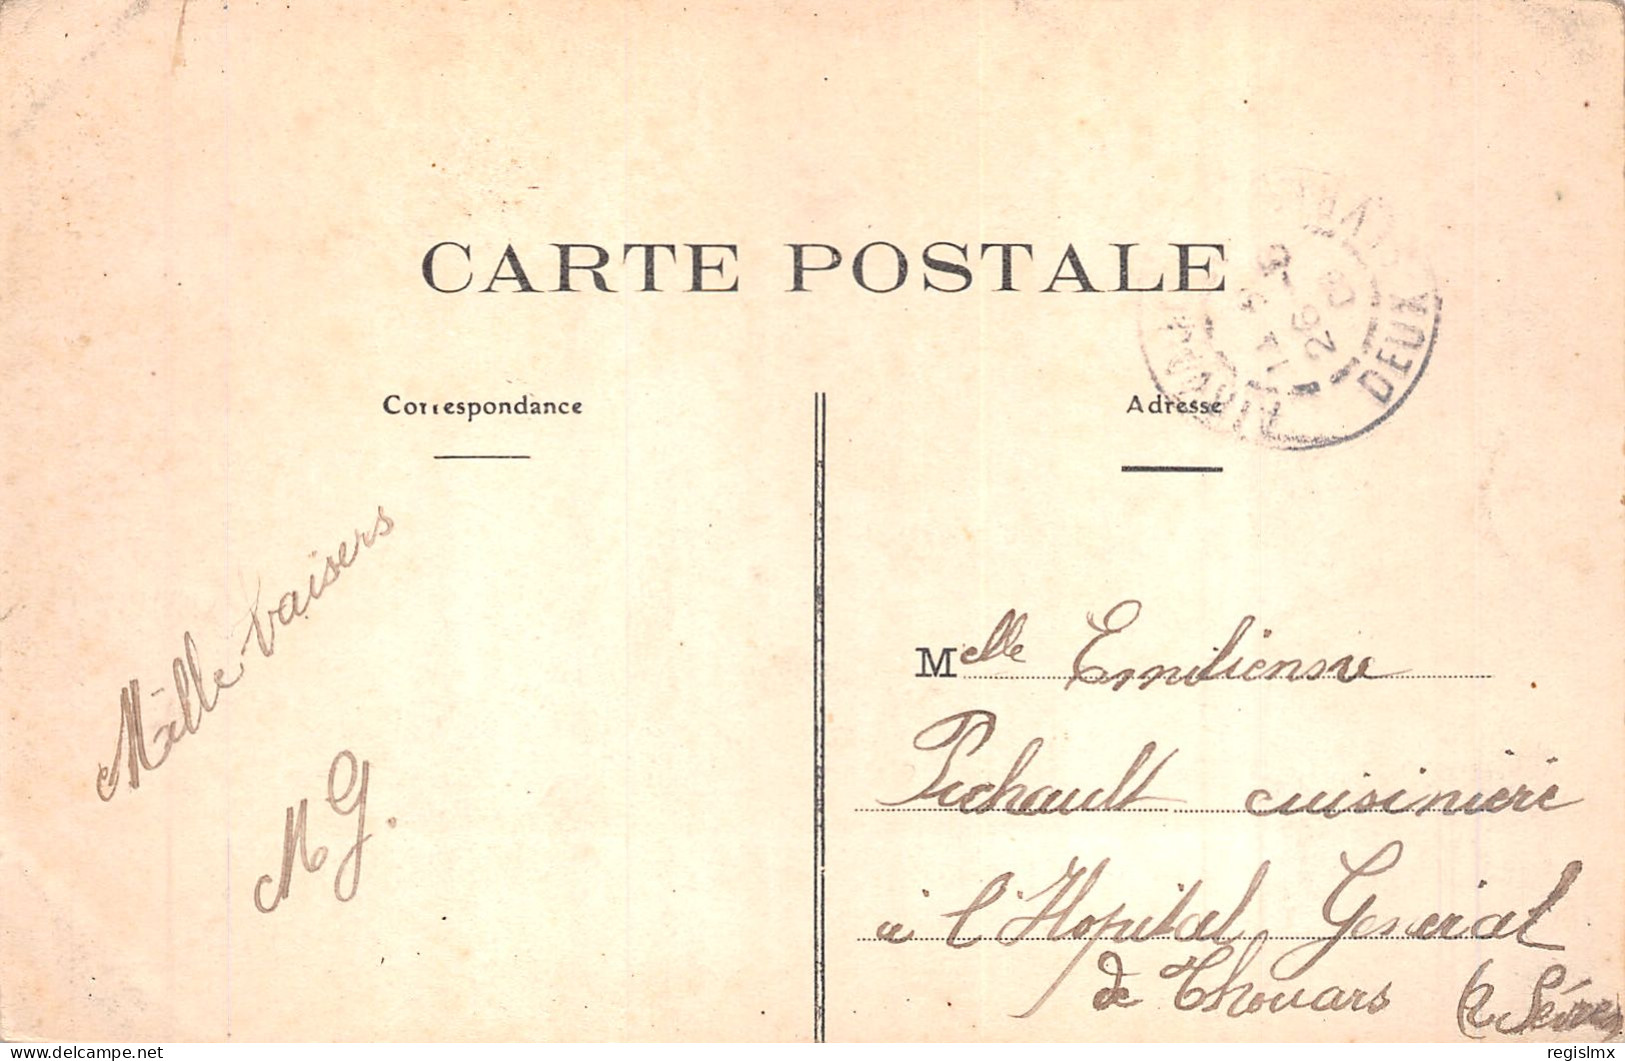 CARTE POSTALE
Correspondance
Adresse
DEUX
26
Mille baisers
M G.
Melle Emilienne
Pichault cuisinière
à l'Hopital General
de Thouars (2 Sèvres
delcampe.net
regislmx